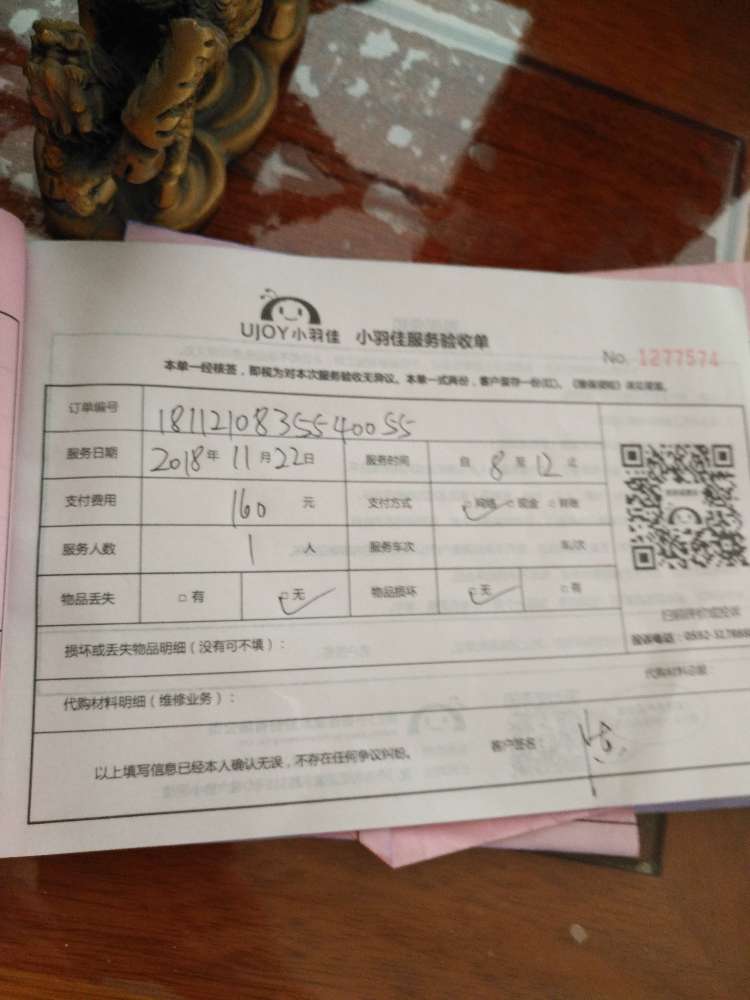 UJOY小羽佳 小羽佳服务验收单
No. 1277574
本单一经核签，即视为对本次服务验收无异议。本单一式两份，客户留存一份(红)。
订单编号 18112108355540055
服务日期 2018年11月22日 服务时间 自 8 至 12 止
支付费用 160 元 支付方式 □网络 □现金 □转账
服务人数 1 人 服务车次 车/次
物品丢失 □有 □无 物品损坏 □无 □有
扫码评价或投诉
损坏或丢失物品明细（没有可不填）：
投诉电话：0592-
代购材料总额
代购材料明细（维修业务）：
以上填写信息已经本人确认无误，不存在任何争议纠纷。 客户签名：